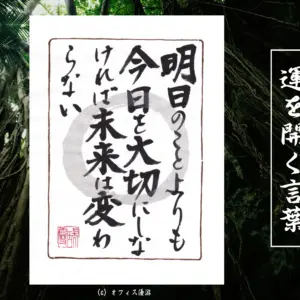 明日のことよりも
今日を大切にしな
ければ未来は変わ
らない
運を開く言葉
(c) オフィス優浴